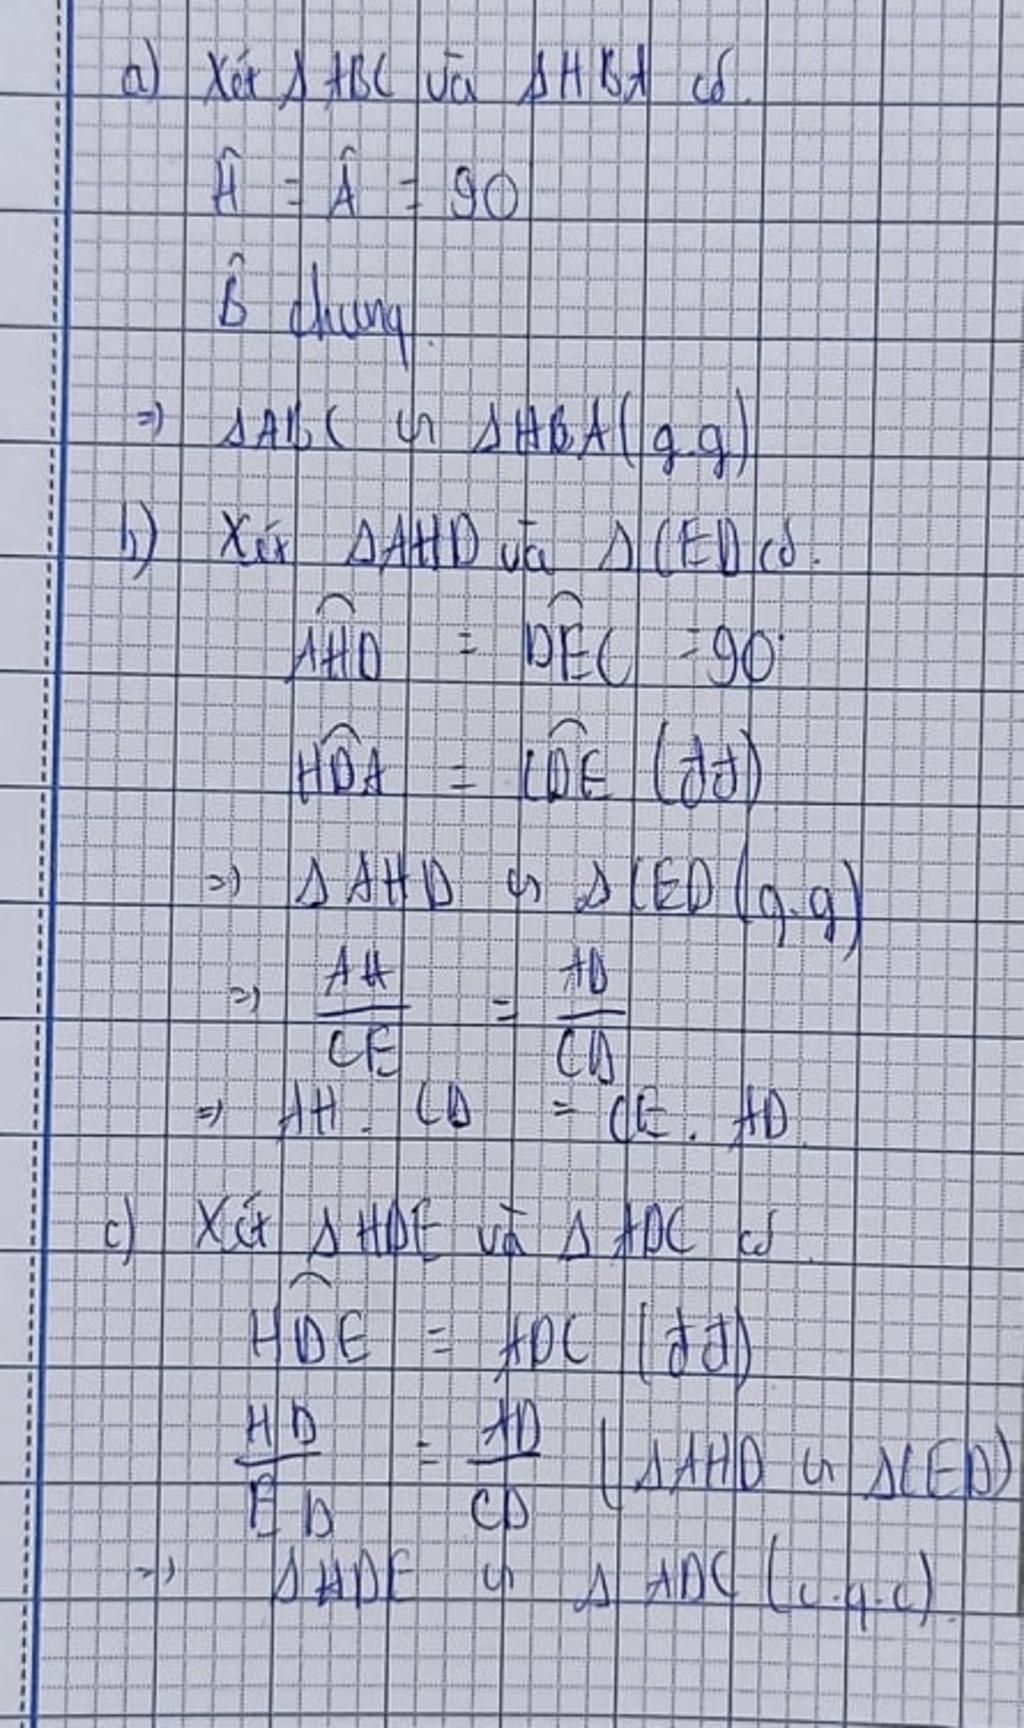 a) Xét Δ ABC và ΔHBA có.
Ĥ = Â = 90
B̂ chung.
=> ΔABC ∽ ΔHBA (g.g)
b) Xét ΔAHD và Δ CED có.
AHD = DEC = 90°
HDA = CDE (đđ)
=> Δ AHD ∽ Δ CED (g.g)
=> AH/CE = AD/CD
=> AH. CD = CE. AD.
c) Xét Δ HDE và Δ ADC có
HDE = ADC (đđ)
HD/ED = AD/CD (ΔAHD ∽ ΔCED)
=> ΔHDE ∽ Δ ADC (c.g.c).